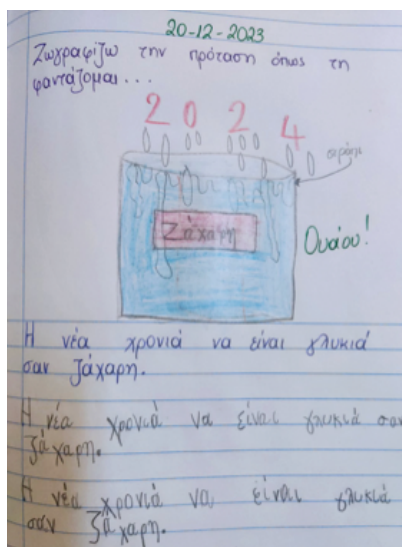 20-12-2023
Ζωγραφίζω την πρόταση όπως τη
φαντάζομαι...
2024
σιρόπι
Ζάχαρη
Ουάου!
Η νέα χρονιά να είναι γλυκιά
σαν ζάχαρη.
Η νέα χρονιά να είναι γλυκιά σαν
ζάχαρη.
Η νέα χρονιά να είναι γλυκιά
σαν ζάχαρη.